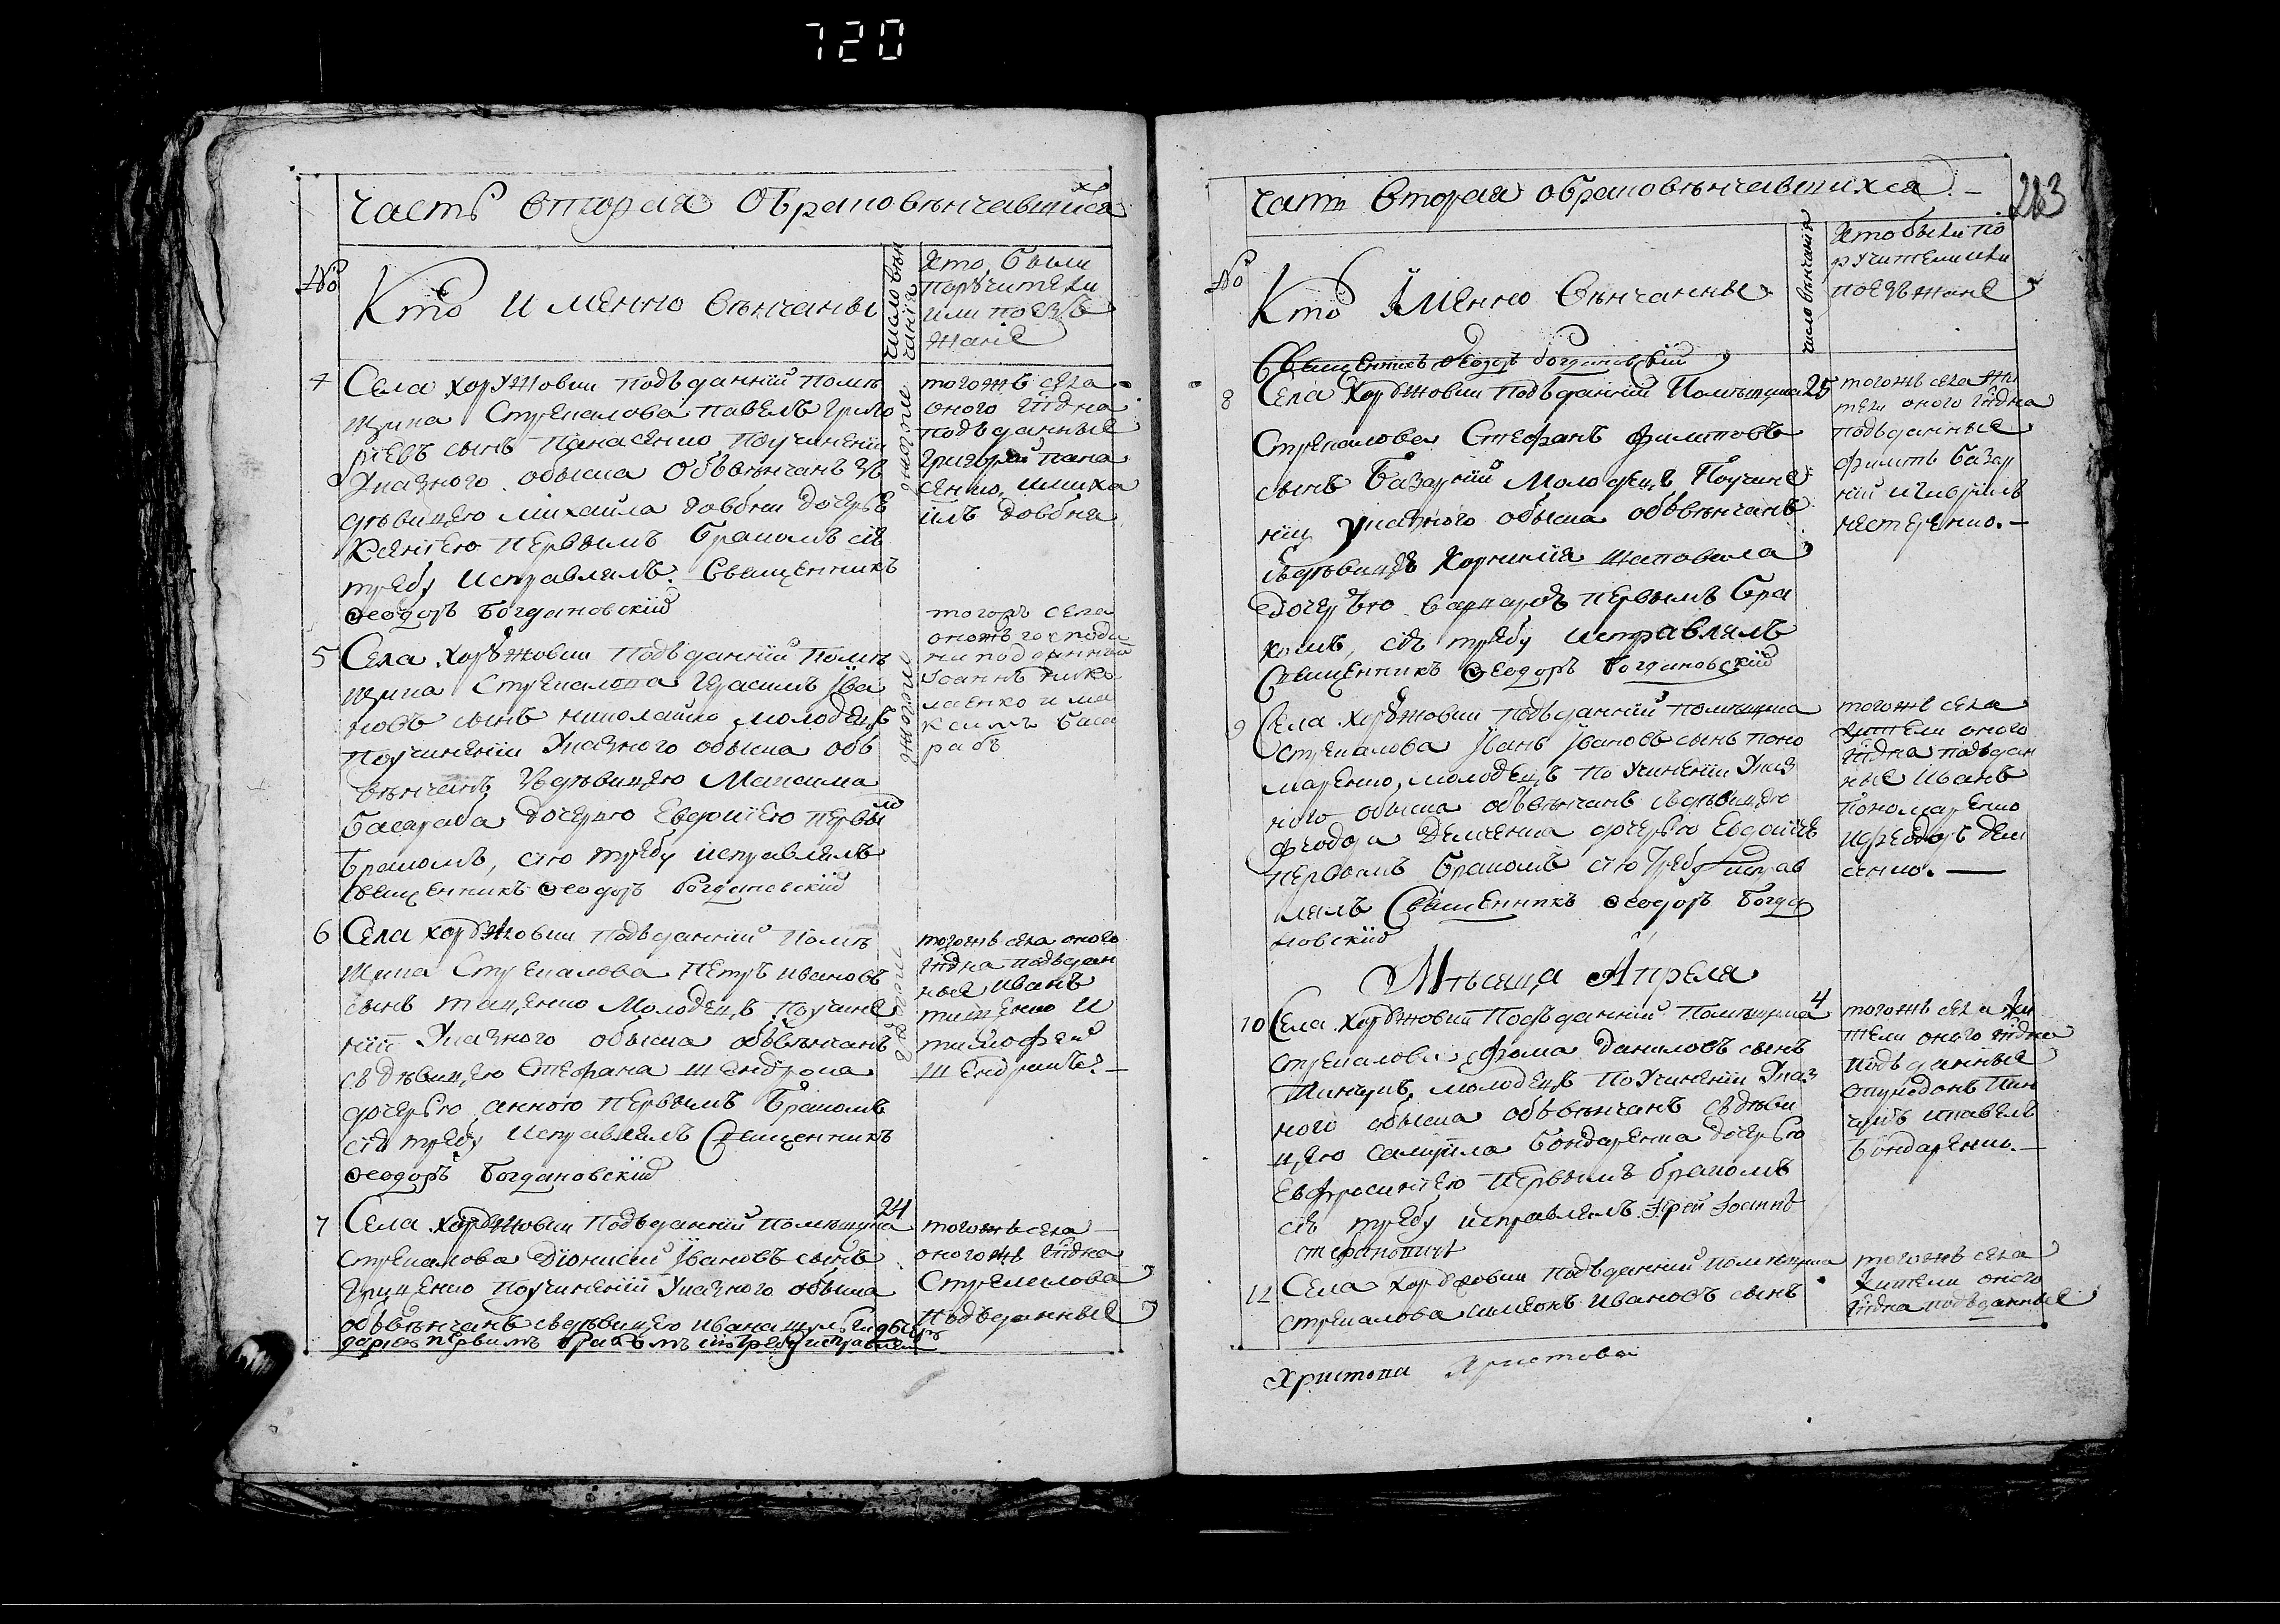 720
часть вторая обрако вѣнчавшихся
№
Кто именно вѣнчаны
число вѣн
чанія
Кто были
поручители
или поезъ
жане
4
Села Хоружовки подъданній помѣ
щика Стрекалова Павелъ Григо
ріевъ сынъ Панасенко поучиненіи
Указного обыска обвѣнчанъ зъ
дѣвицею Михаила довбни дочерью
Ксенією первымъ бракомъ сію
требу исправлялъ Священникъ
Ѳеодоръ Богдановскій
тогожъ
тогожъ села
оного гпдна
подъданные
Григорій Пана
сенко, и миха
илъ довбня
5
Села Хоружовки подъданній помѣ
щика Стрекалова Герасимъ Ива
новъ сынъ николайко молодецъ
поучиненіи Указного обыска объ
вѣнчанъ здѣвицею Максима
басараба дочерью Евдокією первым
бракомъ, сію требу исправлялъ
Священникъ Ѳеодоръ Богдановскій
тогожъ
тогожъ села
оножъ господи
на подданный
Іоаннъ нико
лаенко и ма
ксимъ баса
рабъ
6
Села Хоружовки подъданній помѣ
щика Стрекалова Петръ Ивановъ
сынъ тищенко молодецъ поучине
ніи Указного обыска обвѣнчанъ
съ дѣвицею Стефана шендрика
дочерью анною первымъ бракомъ
сію требу исправлялъ Священникъ
Ѳеодоръ Богдановскій
тогожъ
тогожъ села оного
гпдна подъдан
ные Иванъ
тищенко и
тимофей
шендрикъ
7
Села Хоружовки подъданній помѣщика
Стрекалова Діонисій Ивановъ сынъ
Грищенко поучиненіи Указного обыска
обвѣнчанъ сьдѣвицею Ивана
первимъ бракомъ сію требу исправлялъ
24
тогожъ села
оногожъ гпдна
Стрекалова
подъданные
часть вторая обрако вѣнчавшихся
283
№
Кто именно вѣнчанны
число вѣнчанія
Кто были по
ручители или
поезъжане
Священникъ Ѳеодоръ Богдановскій
8
Села Хоружовки подъданній помѣщика
Стрекалова Стефанъ филиповъ
сынъ базарній молодецъ поучине
ніи Указного обыска обвѣнчанъ
сьдѣвицею Корнилія шаповала
дочерью варварою первымъ бра
комъ, сію требу исправлялъ
Священникъ Ѳеодоръ Богдановскій
25
тогожъ села жи
тели оного гпдна
подъданные
филипъ базар
ній и гавріилъ
нестеренко.
9
Села Хоружовки подъданній помѣщика
Стрекалова Іванъ Івановъ сынъ поно
маренко, молодецъ поучиненіи Указ
ного обыска обвѣнчанъ сьдѣвицею
феодора демченка дочерью Евдокією
первымъ бракомъ сію требу исправ
лялъ Священникъ Ѳеодоръ Богда
новскій
тогожъ села
жители оного
гпдна подъдан
ные Иванъ
пономаренко
и феодоръ дем
ченко.
Мѣсяца Апреля
10
Села Хоружовки подъданній помѣщика
Стрекалова фома даниловъ сынъ
Пинчукъ молодецъ поучиненіи Указ
ного обыска обвѣнчанъ сьдѣви
цею Самуила бондаренка дочерью
Евфросинією первымъ бракомъ
сію требу исправлялъ Іерей Іоаннъ
стефановичъ
4
тогожъ села жи
тели оного гпдна
подъданные
спиридонъ пин
чукъ и павелъ
бондаренко.
12
Села Хоружовки подъданній помѣщика
Стрекалова симеонъ Ивановъ сынъ
тогожъ села
жители оного
гпдна подъданные
Христова Христова